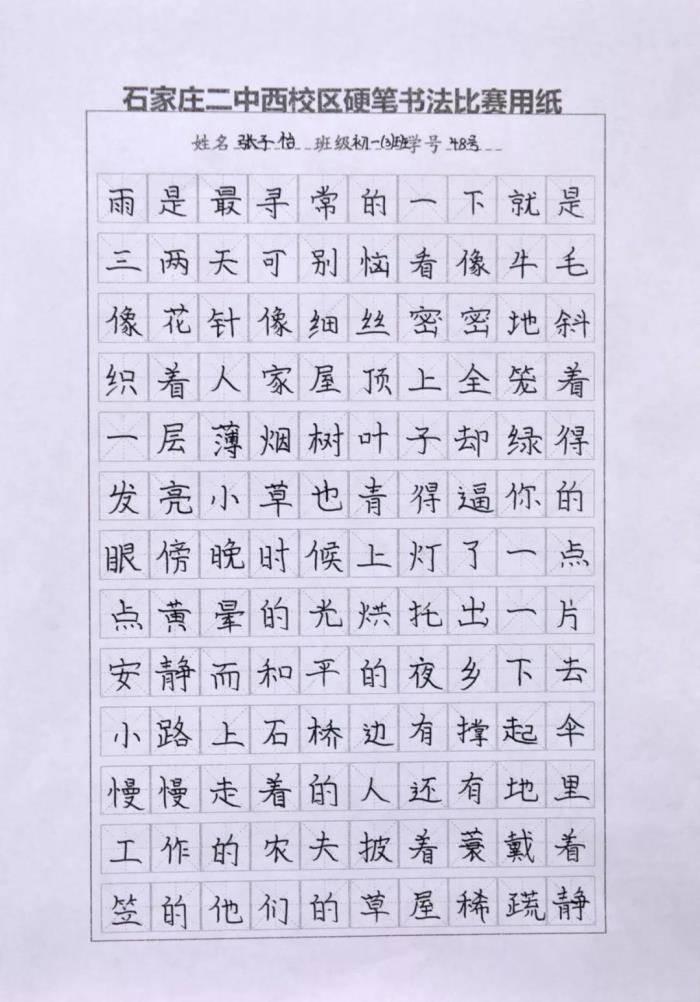 石家庄二中西校区硬笔书法比赛用纸
姓名 张子怡 班级 初一(3)班 学号 48号
雨是最寻常的一下就是
三两天可别恼看像牛毛
像花针像细丝密密地斜
织着人家屋顶上全笼着
一层薄烟树叶子却绿得
发亮小草也青得逼你的
眼傍晚时候上灯了一点
点黄晕的光烘托出一片
安静而和平的夜乡下去
小路上石桥边有撑起伞
慢慢走着的人还有地里
工作的农夫披着蓑戴着
笠的他们的草屋稀疏静